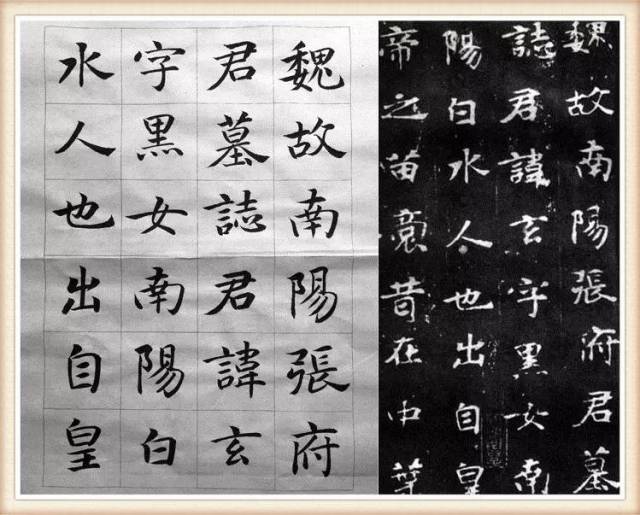 魏故南陽張府
君墓誌君諱玄
字黑女南陽白
水人也出自皇
魏故南陽張府君墓
誌君諱玄字黑女南
陽白水人也出自皇
帝之苗裔昔在中葉